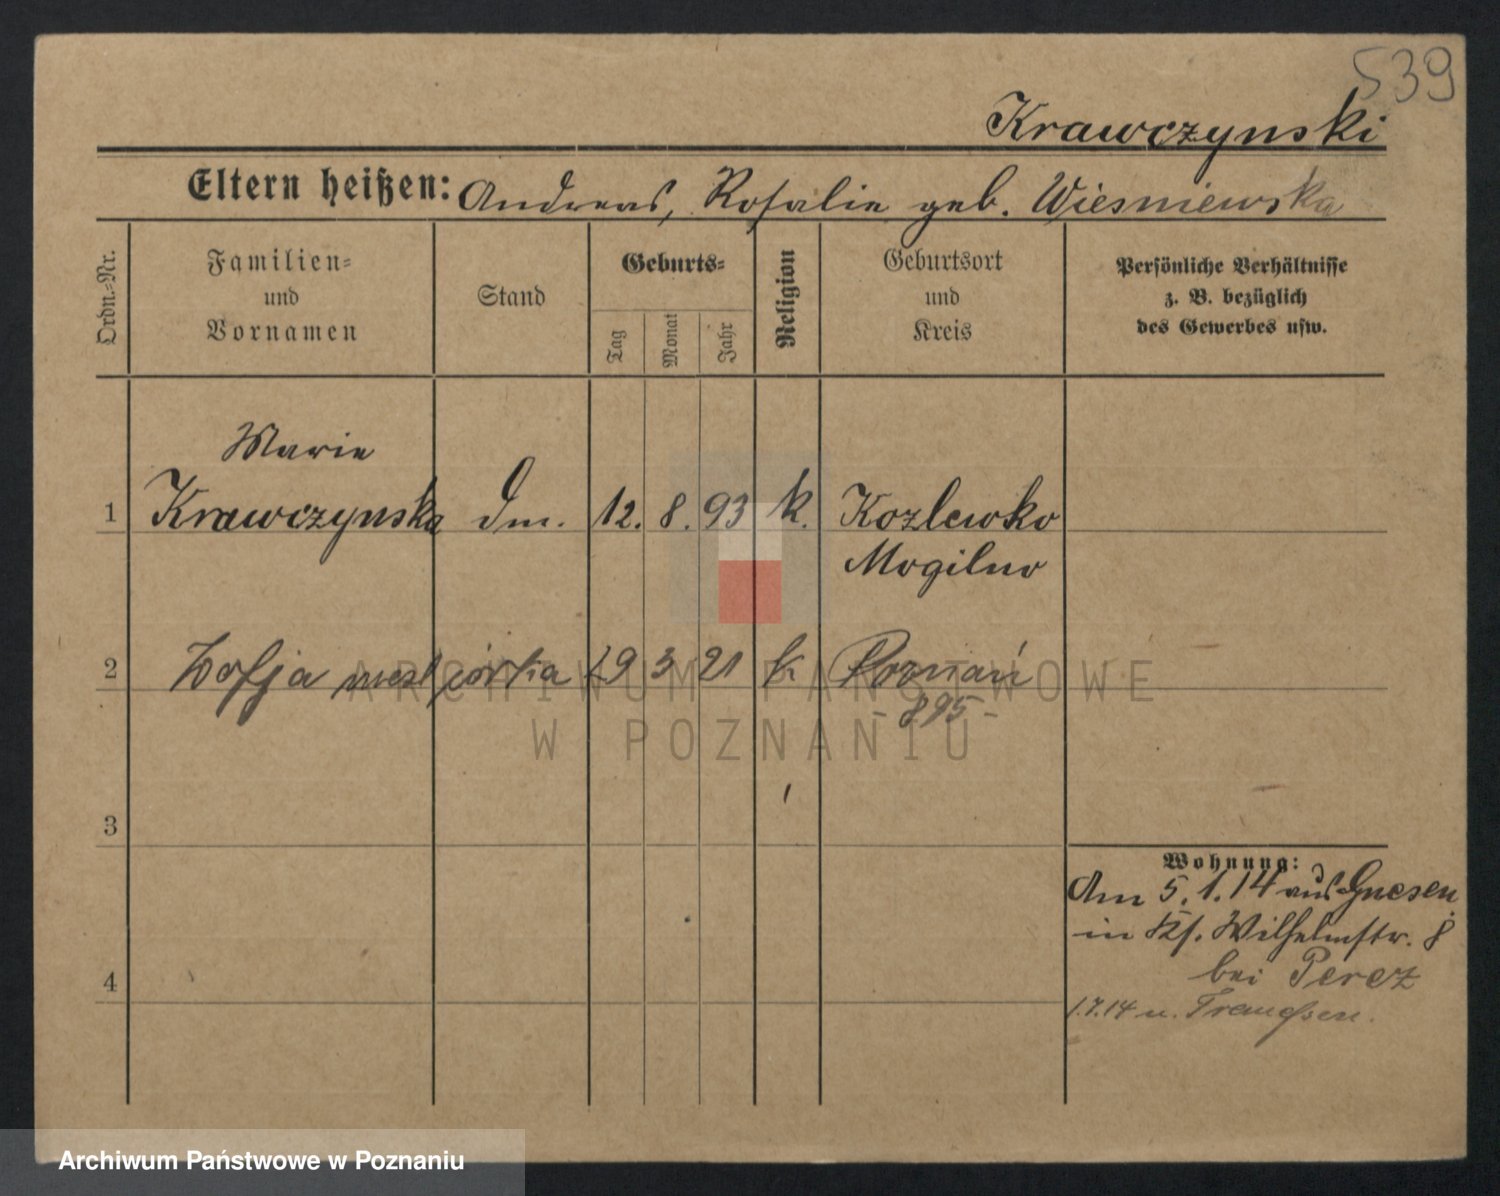 539
Krawczynski
Eltern heißen: Andreas, Rosalie geb. Wiesniewska
Ordn.-Nr.
Familien- und Vornamen
Stand
Geburts-
Tag
Monat
Jahr
Religion
Geburtsort und Kreis
Persönliche Verhältnisse
z. B. bezüglich
des Gewerbes usw.
Marie
1 Krawczynska Dm. 12. 8. 93 k. Kozlewko
Mogilno
2 Zofja córka 19 3 21 k Poznań
- 895 -
3
Wohnung:
Am 5.1.14 aus Gnesen
in Kf. Wilhelmstr. 8
bei Perez
4
1.7.14 n.
ARCHIWUM PAŃSTWOWE
W POZNANIU
Archiwum Państwowe w Poznaniu